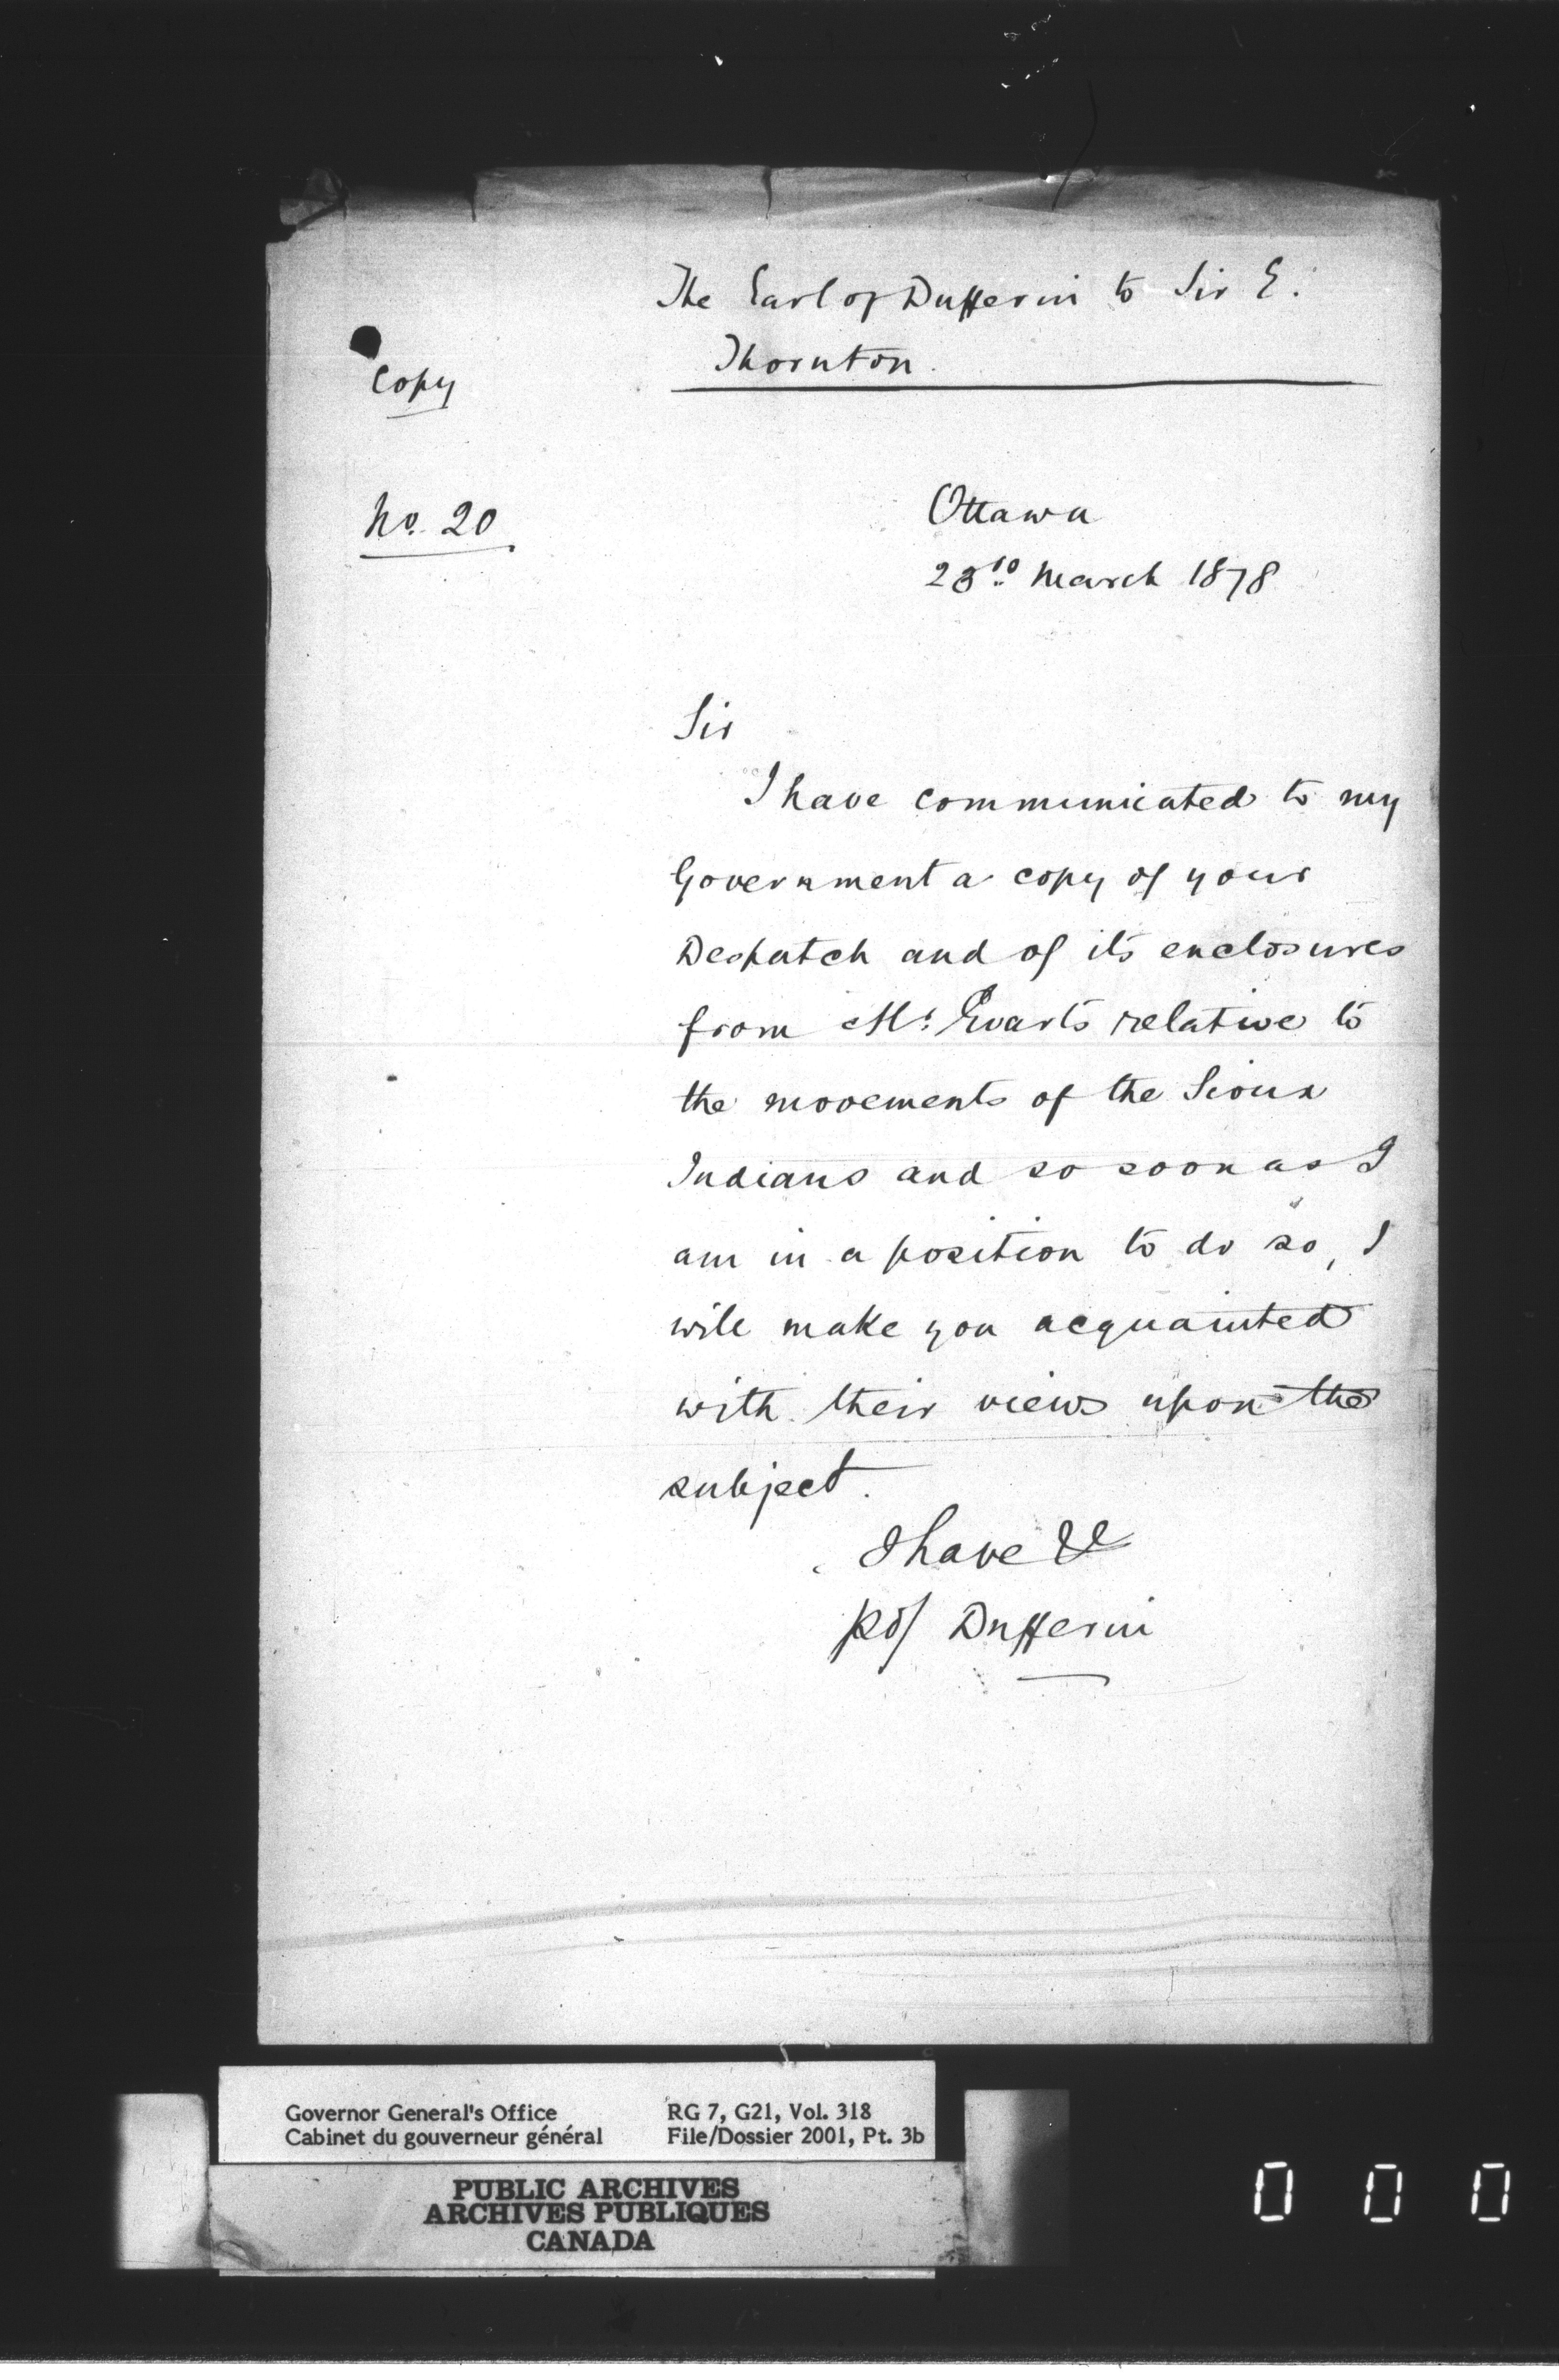 The Earl of Dufferin to Sir E.
Thornton.
Copy
No. 20
Ottawa
23rd March 1878
Sir
I have communicated to my
Government a copy of your
Despatch and of its enclosures
from Mr. Evarts relative to
the movements of the Sioux
Indians and so soon as I
am in a position to do so, I
will make you acquainted
with their views upon the
subject.
I have &c
Dufferin
Governor General's Office
Cabinet du gouverneur général
RG 7, G21, Vol. 318
File/Dossier 2001, Pt. 3b
PUBLIC ARCHIVES
ARCHIVES PUBLIQUES
CANADA
0 0 0